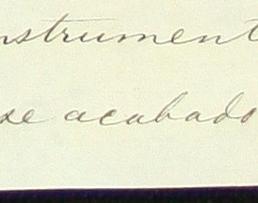 nstrument
se acabado